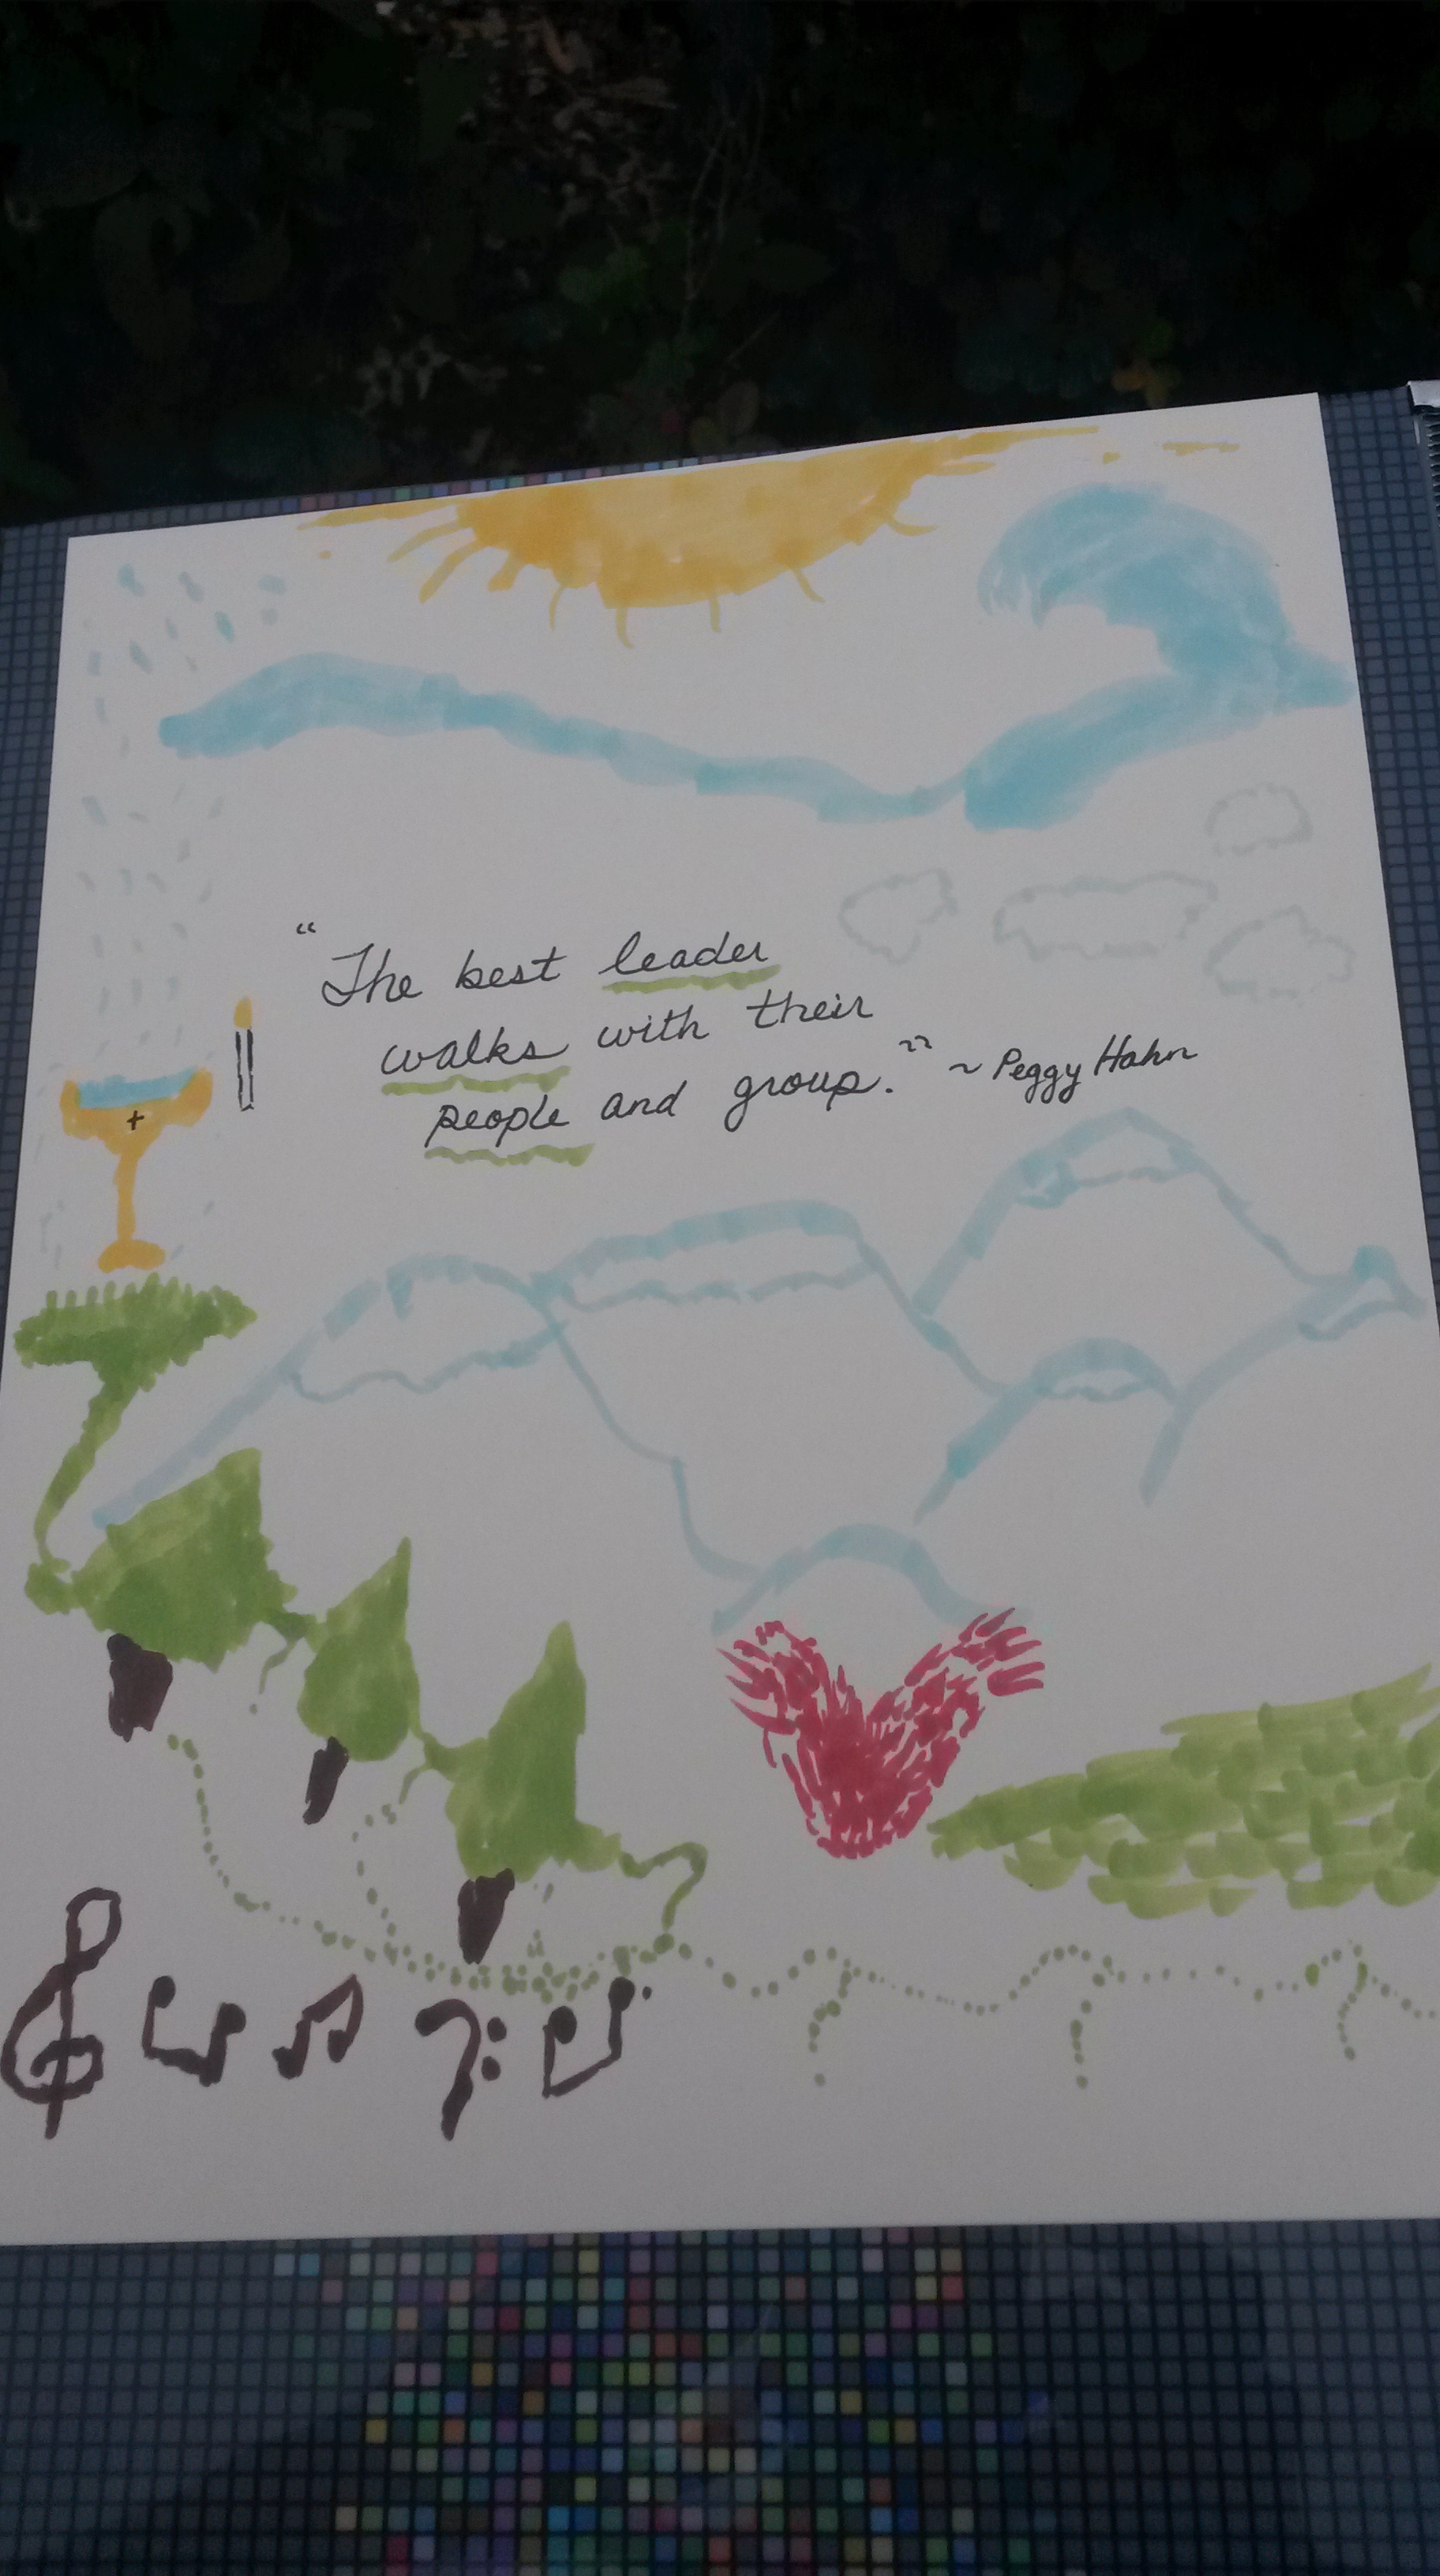 "The best leader
walks with their
people and group." ~ Peggy Hahn